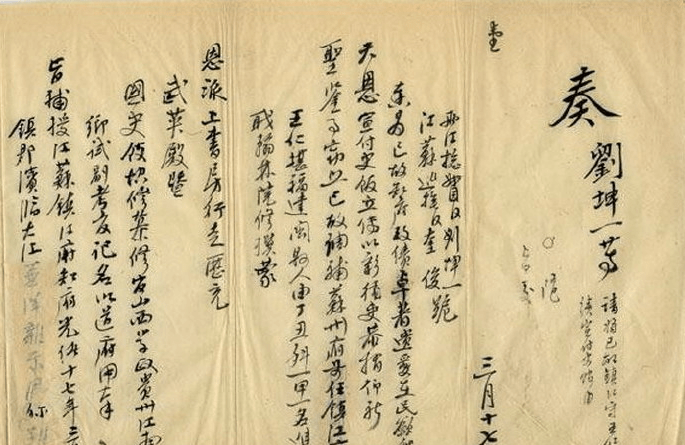 奏
劉坤一等
請將已故鎮江守王仁
三月十七
兩江總督臣劉坤一
江蘇巡撫臣奎俊跪
奏為已故知府政績卓著遺愛在民懇
天恩宣付史館立傳以彰循吏恭摺仰祈
聖鑒事竊照已故調補蘇州府原任鎮江
王仁堪福建閩縣人由丁丑科一甲一名
職翰林院修撰蒙
恩派上書房行走歷充
武英殿暨
國史館協修纂修官山西學政貴州江南
鄉試副考官記名以道府用
旨補授江蘇鎮江府知府光緒十七年三
鎮郡濱臨大江